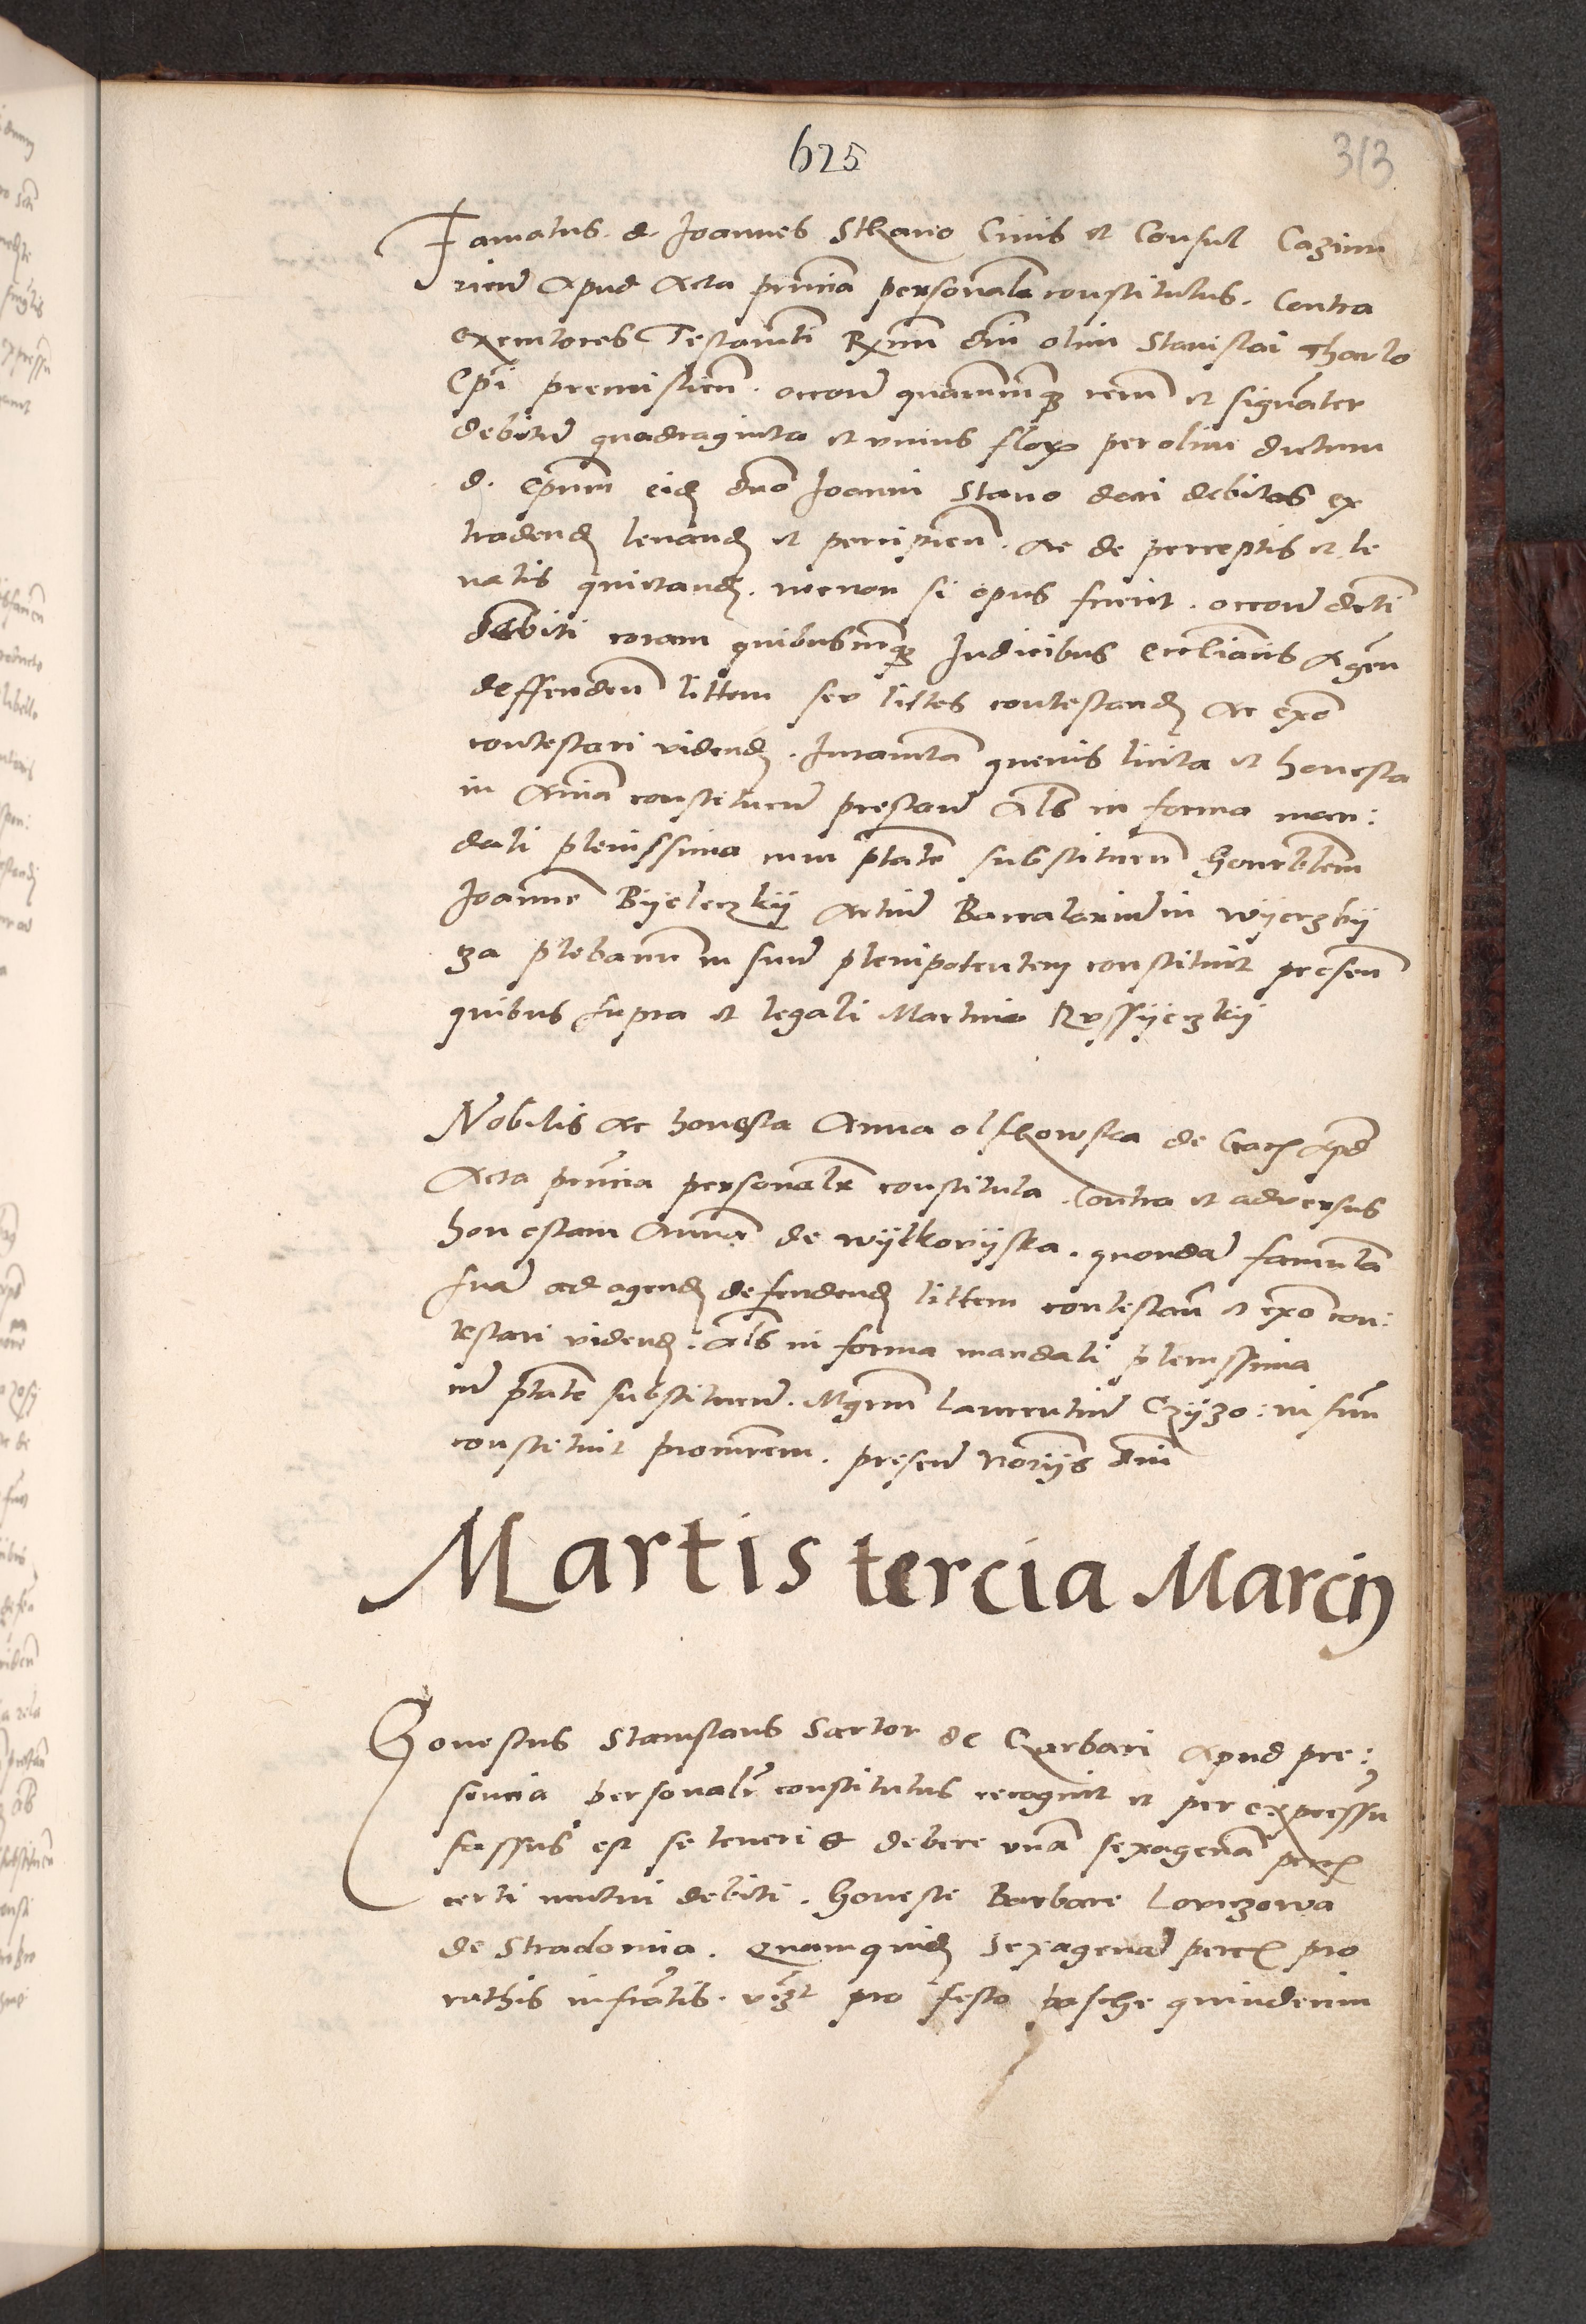 625
313
Famatus d. Joannes Strano Civis et Consul Cazimi
rien Apud Acta pntia personalr constitutus. Contra
executores Testamti Rxmi dni olim Stanislai Tharlo
Epi premislien. occone quarumcumq rerum et signater
debitu quadraginta et unius flor per olim dictum
d. epum eid dno Joanni Stano dari debitos ex
tradend levand et percipien. Ac de perceptis et le
vatis quictand. necnon si opus fuerit. occone dicti
debiti coram quibuscumq Judicibus Eccliacis Agen
deffenden littem seu littes contestand Ac exo
contestari vidend. Juramta quevis licita et honesta
in Aniam constituen prestan Als in forma man:
dati plenissima cum ptate substituen Honorblem
Joanne Byeleczky Artiu Baccalariu in wyerzby
za plebanum in suu plenipotentem constituit presen
quibus supra et legali Martino Ryssyeczky
Nobilis Ac honesta Anna olskowska de Crac Apd
Acta pntia personalr constituta. Contra et adversus
honestam Anna de wylkowyska. quondam famula
sua ad agend defendend littem contestan et exo con:
testari vidend. Als in forma mandati plenissima
cu ptate substituen. Mgrum Laurentiu Czyzo: in suu
constituit procurem. presen Noriis dni
Martis tercia Marcii
Honestus Stanislaus Sartor de Garbari Apud pre:
sencia personalr constitutus recognit et per expressu
fassus est se teneri et debere una sexagena pecc
certi mutui debiti. Honeste Barbare Lorinzowa
de Stradomia. Quamquid Sexagena pecc pro
rathis infratis. vizt pro festo pasche quindecim